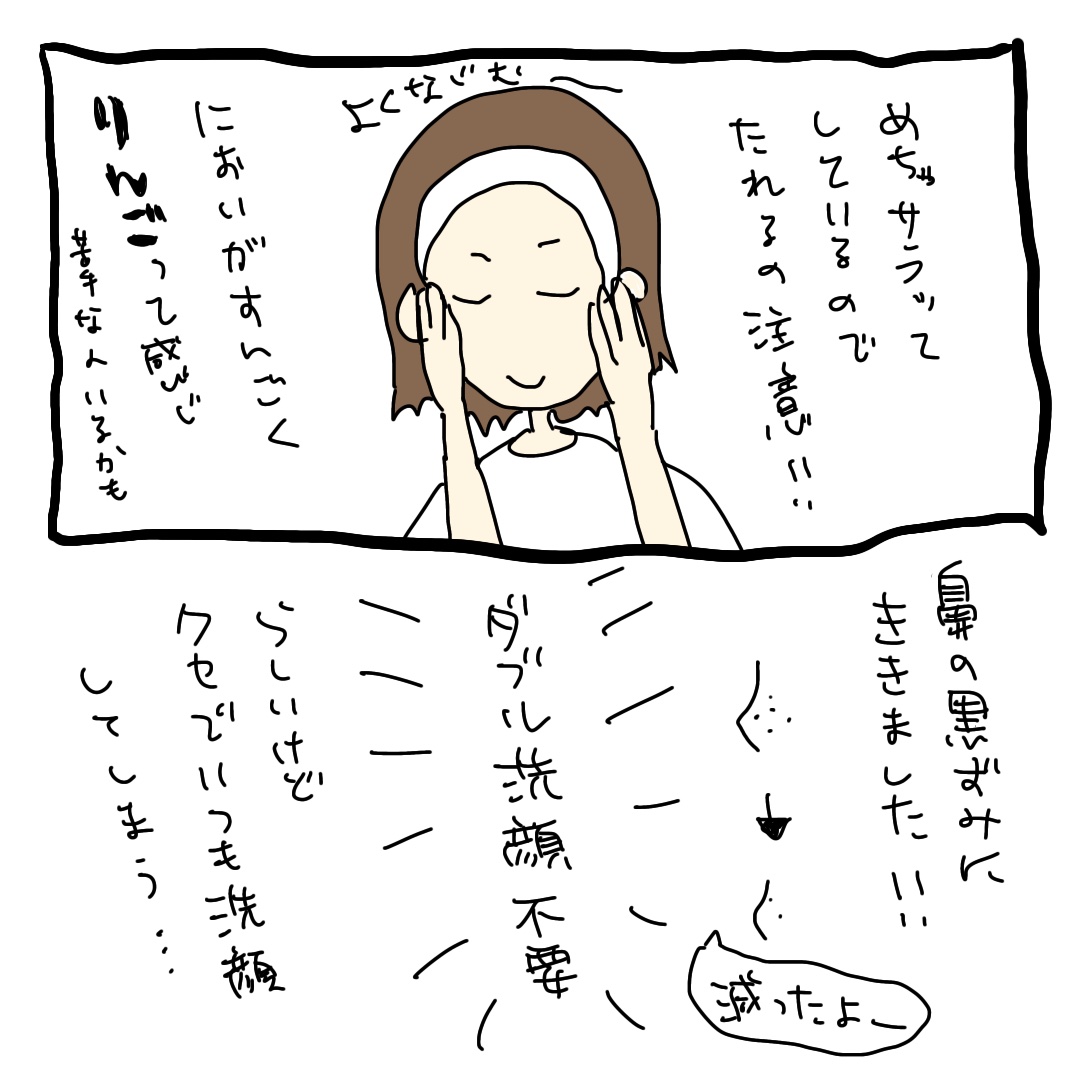 めちゃサラッって
しているので
たれるの注意!!
よくなじむ〜
においがすんごく
りんごって感じ
苦手な人いるかも
鼻の黒ずみに
ききました!!
減ったよー
ダブル洗顔不要
らしいけど
クセでいつも洗顔
してしまう…